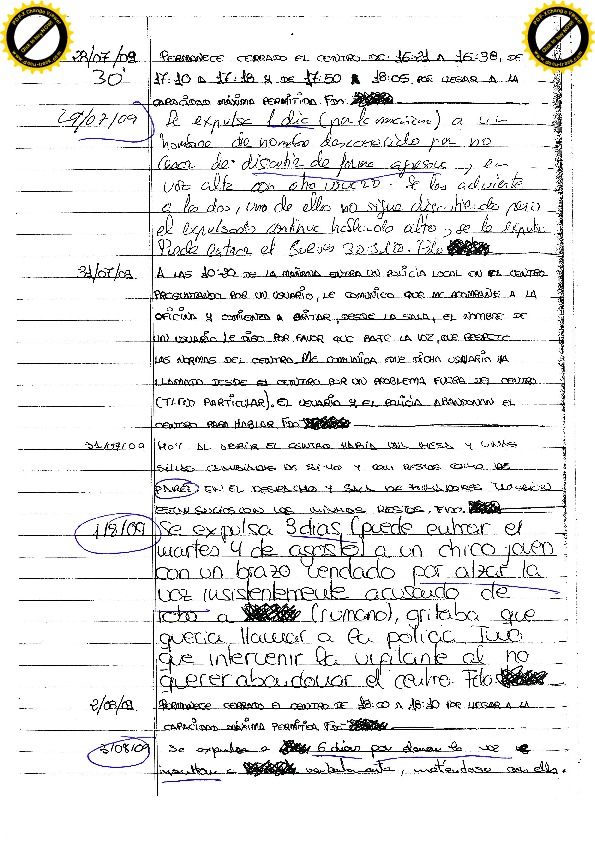 28/07/09 PERMANECE CERRADO EL CENTRO DE: 16:21 A 16:38, DE
30 17:10 A 17:18 Y DE 17:50 A 18:05, POR LLEGAR A LA
CAPACIDAD MÁXIMA PERMITIDA. FDO:
29/07/09 Se expulsa 1 día (por la mañana) a un
hombre de nombre desconocido por no
cesar de discutir de forma agresiva, en
voz alta con otro usuario. Se les advierte
a los dos, uno de ellos no sigue discutiendo pero
el expulsado continua hablando alto, se le expulsa
Puede entrar el Jueves 30 Julio. Fdo
31/07/09 A LAS 10:20 DE LA MAÑANA ENTRA UN POLICÍA LOCAL EN EL CENTRO
PREGUNTANDO POR UN USUARIO, LE COMUNICO QUE ME ACOMPAÑE A LA
OFICINA Y COMIENZA A GRITAR, DESDE LA SALA, EL NOMBRE DE
UN USUARIO. LE DIGO POR FAVOR QUE BAJE LA VOZ, QUE RESPETE
LAS NORMAS DEL CENTRO. ME COMUNICA QUE DICHO USUARIO HA
LLAMADO DESDE EL CENTRO POR UN PROBLEMA FUERA DEL CENTRO
(TLFNO PARTICULAR). EL USUARIO Y EL POLICÍA ABANDONAN EL
CENTRO PARA HABLAR. FDO:
31/07/09 HOY AL ABRIR EL CENTRO HABÍA UNA MESA Y UNAS
SILLAS CAMBIADAS DE SITIO Y CON RESTOS COMO DE
PAREZ EN EL DESPACHO Y SALA DE
CON LOS MISMOS RESTOS. FDO.
1/8/09 Se expulsa 3 días (puede entrar el
martes 4 de agosto) a un chico joven
con un brazo vendado por alzar la
voz insistentemente acusando de
robo a (rumano), gritaba que
quería llamar a la policía. Tuvo
que intervenir la vigilante al no
querer abandonar el centro. Fdo
2/08/09 PERMANECE CERRADO EL CENTRO DE 18:00 A 18:10 POR LLEGAR A LA
CAPACIDAD MÁXIMA PERMITIDA FDO:
3/08/09 Se expulsa a 6 días por elevar la voz e
insultar a verbalmente, metiéndose con ella.